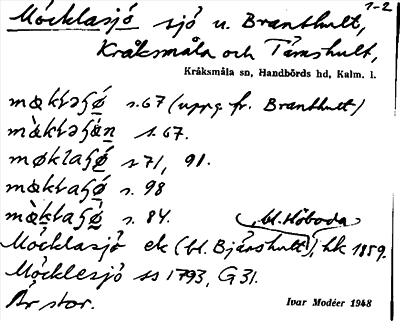 1-2
Möcklasjö sjö u. Branthult,
Kråksmåla och Tämshult,
Kråksmåla sn, Handbörds hd, Kalm. l.
s. 67 (uppg fr. Branthult)
s. 67.
s. 71, 91.
s. 98
s. 84.
bl. Höboda
Möcklasjö ek (bl. Bjärshult), hk 1859.
Möcklesjö ss 1793, G 31.
Är stor.
Ivar Modéer 1948